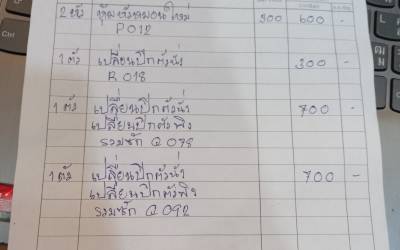 2 ตัว หุ้มหัวหมอนใหม่ 300 600 -
P012
1 ตัว เปลี่ยนปีกตัวนั่ง 300 -
R 018
1 ตัว เปลี่ยนปีกตัวนั่ง 700 -
เปลี่ยนปีกตัวพิง
รวมซัก Q 075
1 ตัว เปลี่ยนปีกตัวนั่ง 700 -
เปลี่ยนปีกตัวพิง
รวมซัก Q 092
Ctrl